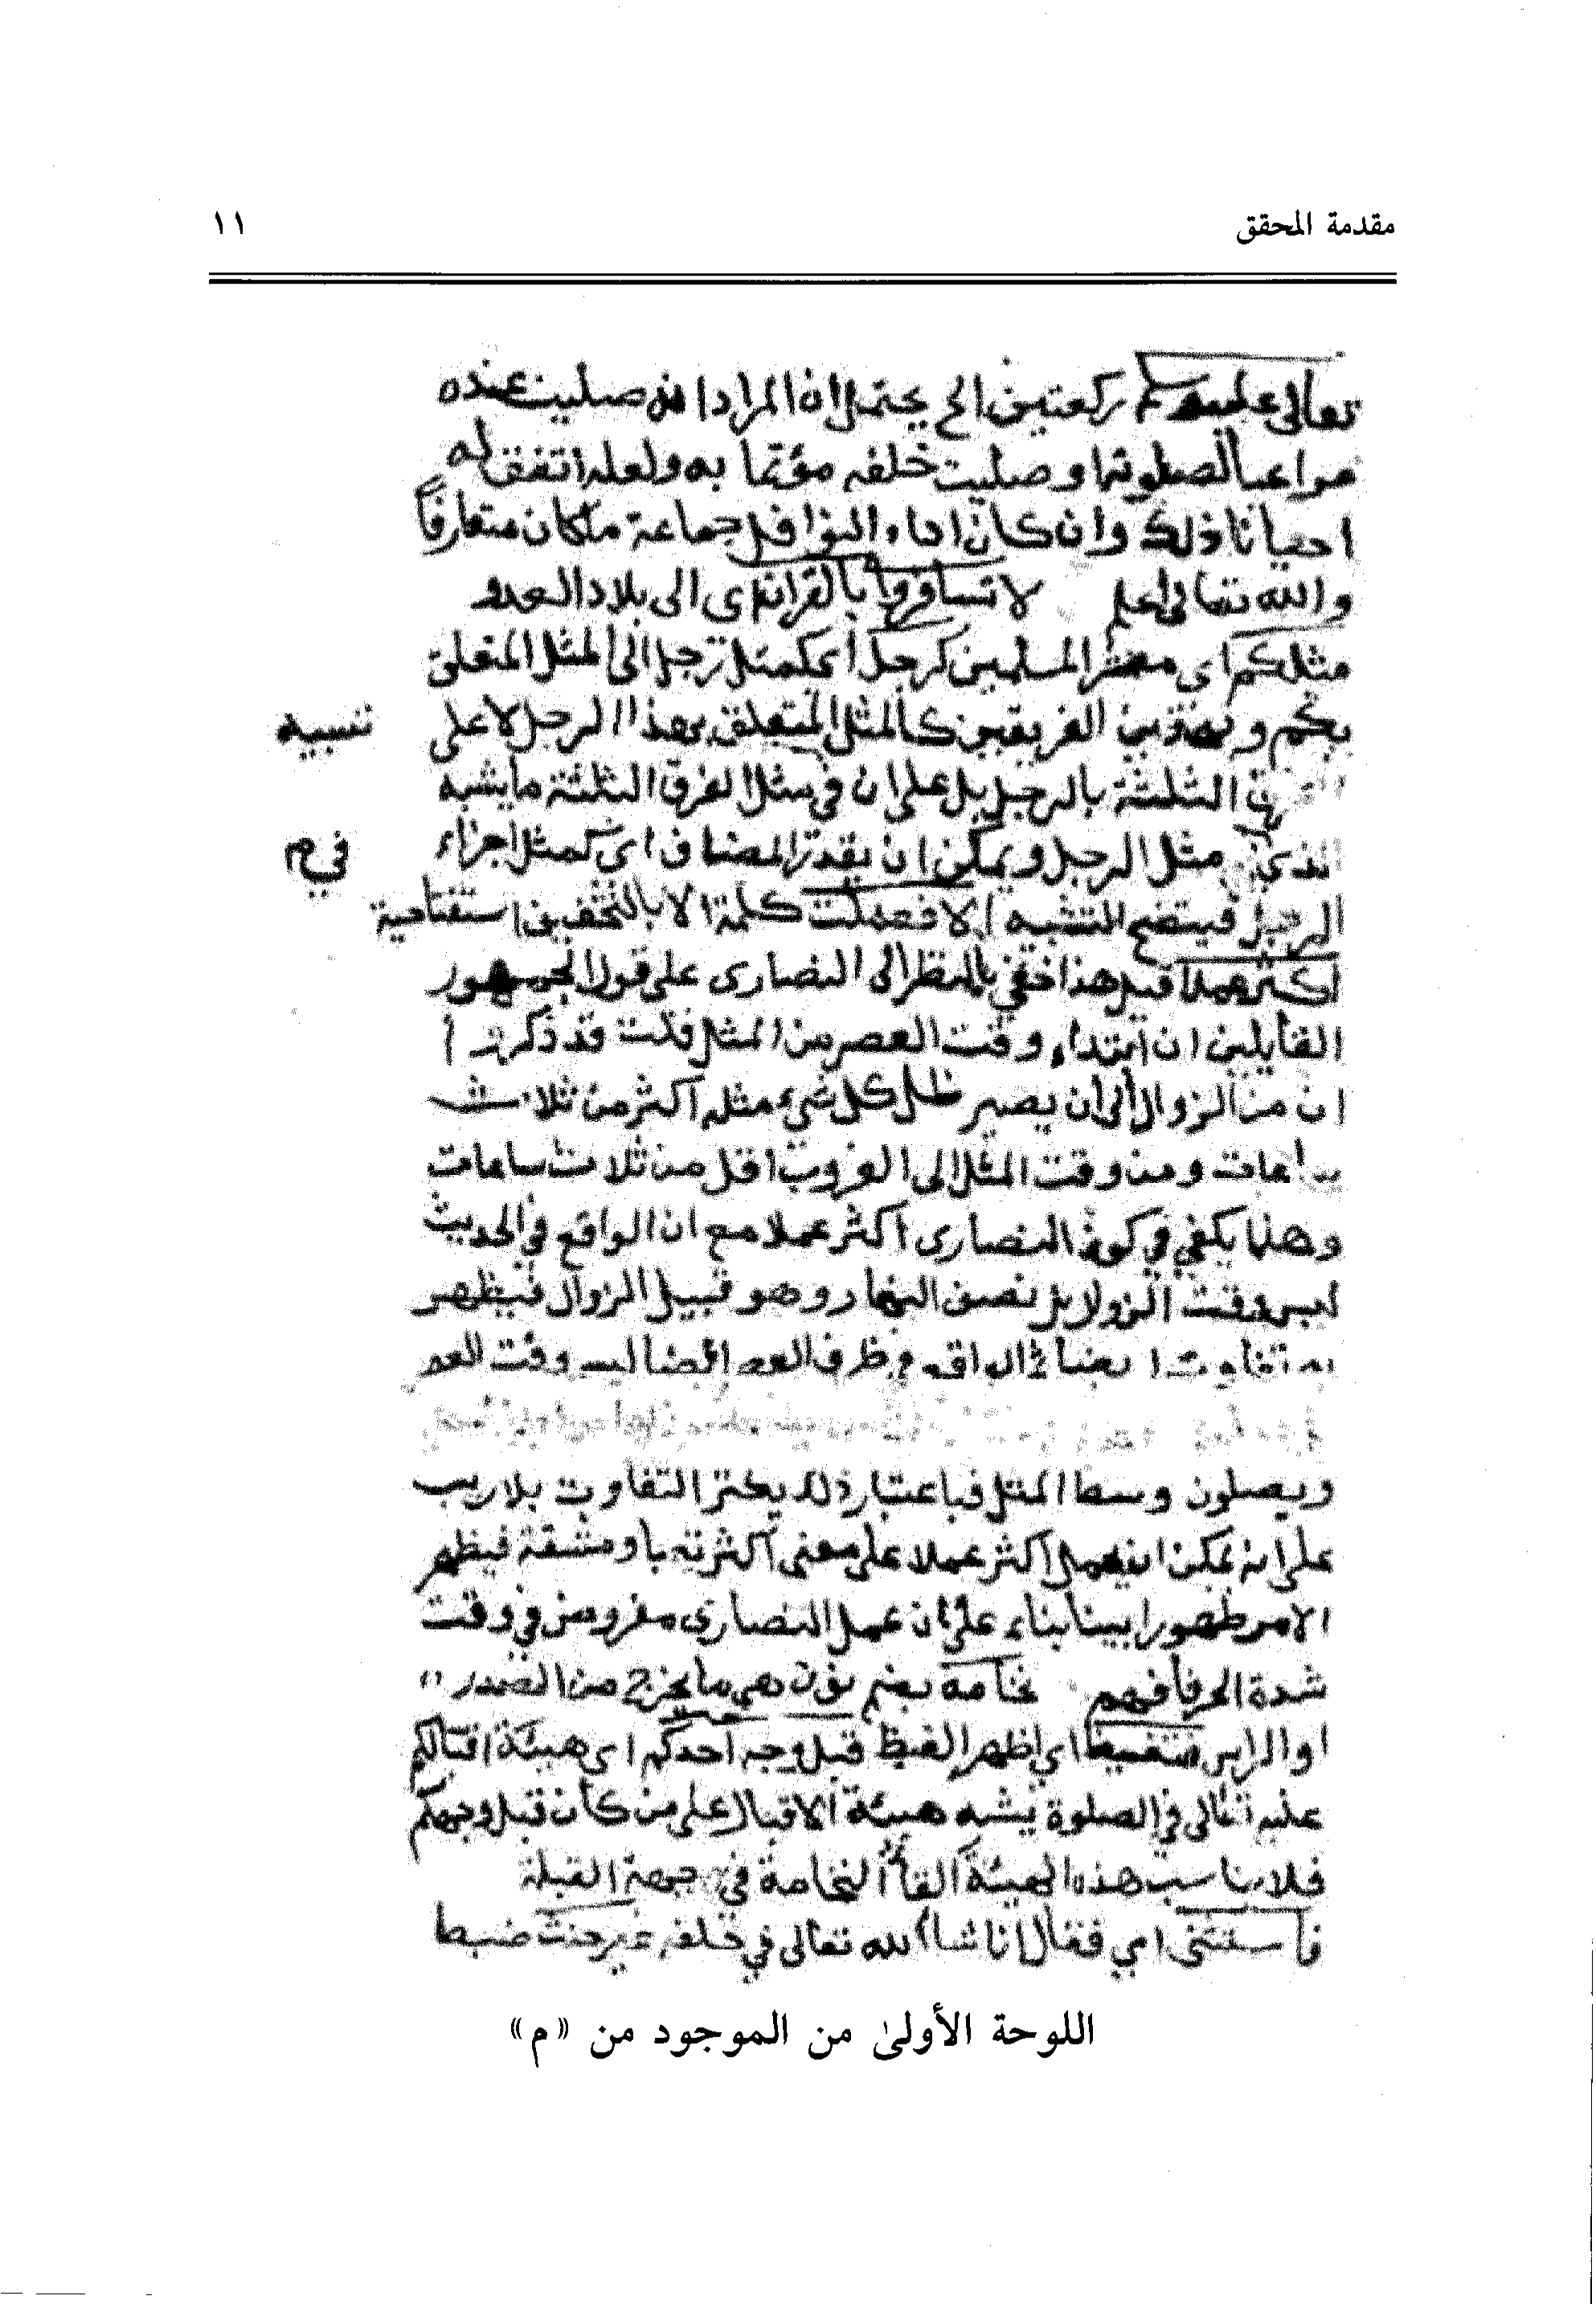 مقدمة المحقق ١١
تعالى عليه وسلم ركعتين الخ يحتمل ان المراد اني صليت عنده
مراعيا لصلوته او صليت خلفه مؤتما به ولعله اتفق له
احيانا ذلك وان كان اداء النوافل جماعة ما كان متعارفاً
والله تعالى اعلم لا تسافروا بالقران اي الى بلاد العدو
مثلكم اي معشر المسلمين كرجل اي كمثل رجل اي المثل المتعلق
بكم و الفريقين كالمثل المتعلق بهذا الرجل لا على تشبيه
الثلثة بالرجل بل على ان في مثل الفرق الثلثة ما يشبه
الذي مثل الرجل ويمكن ان يقدر المضاف اي كمثل اجزاء في م
الرجل فيتضح التشبيه الا فعملت كلمة الا بالتخفيف استفتاحية
اكثر عملا قيل هذا خفي بالنظر الى النصارى على قول الجمهور
القايلين ان ابتداء وقت العصر من المثل قلت قد ذكروا
ان من الزوال الى ان يصير ظل كل شيء مثله اكثر من ثلاث
ساعات ومن وقت المثل الى الغروب اقل من ثلاث ساعات
وهذا يكفي في كون النصارى اكثر عملا مع ان الواقع في الحديث
ليس وقت الزوال بل نصف النهار وهو قبيل الزوال فيظهر
به تفاوت ايضا في الواقع وظرف العصر ايضا ليس وقت العصر
ويصلون وسط المثل فباعتبار ذلك يكثر التفاوت بلا ريب
على انه يمكن ان يحمل اكثر عملا على معنى اكثر تعبا ومشقة فيظهر
الامر ظهورا بينا بناء على ان عمل النصارى مفروض في وقت
شدة الحر فافهم نخامة بضم نون هي ما يخرج من الصدر
او الراس فتغيظ اي اظهر الغيظ قبل وجه احدكم اي هيئة اقبالكم
عليه تعالى في الصلوة يشبه هيئة الاقبال على من كان قبل وجهكم
فلا يناسب هذه الهيئة القاء النخامة في جهة القبلة
فاستثنى اي فقال ان شاء الله تعالى في حلفه غير حنث ضبط
اللوحة الأولىٰ من الموجود من «م»